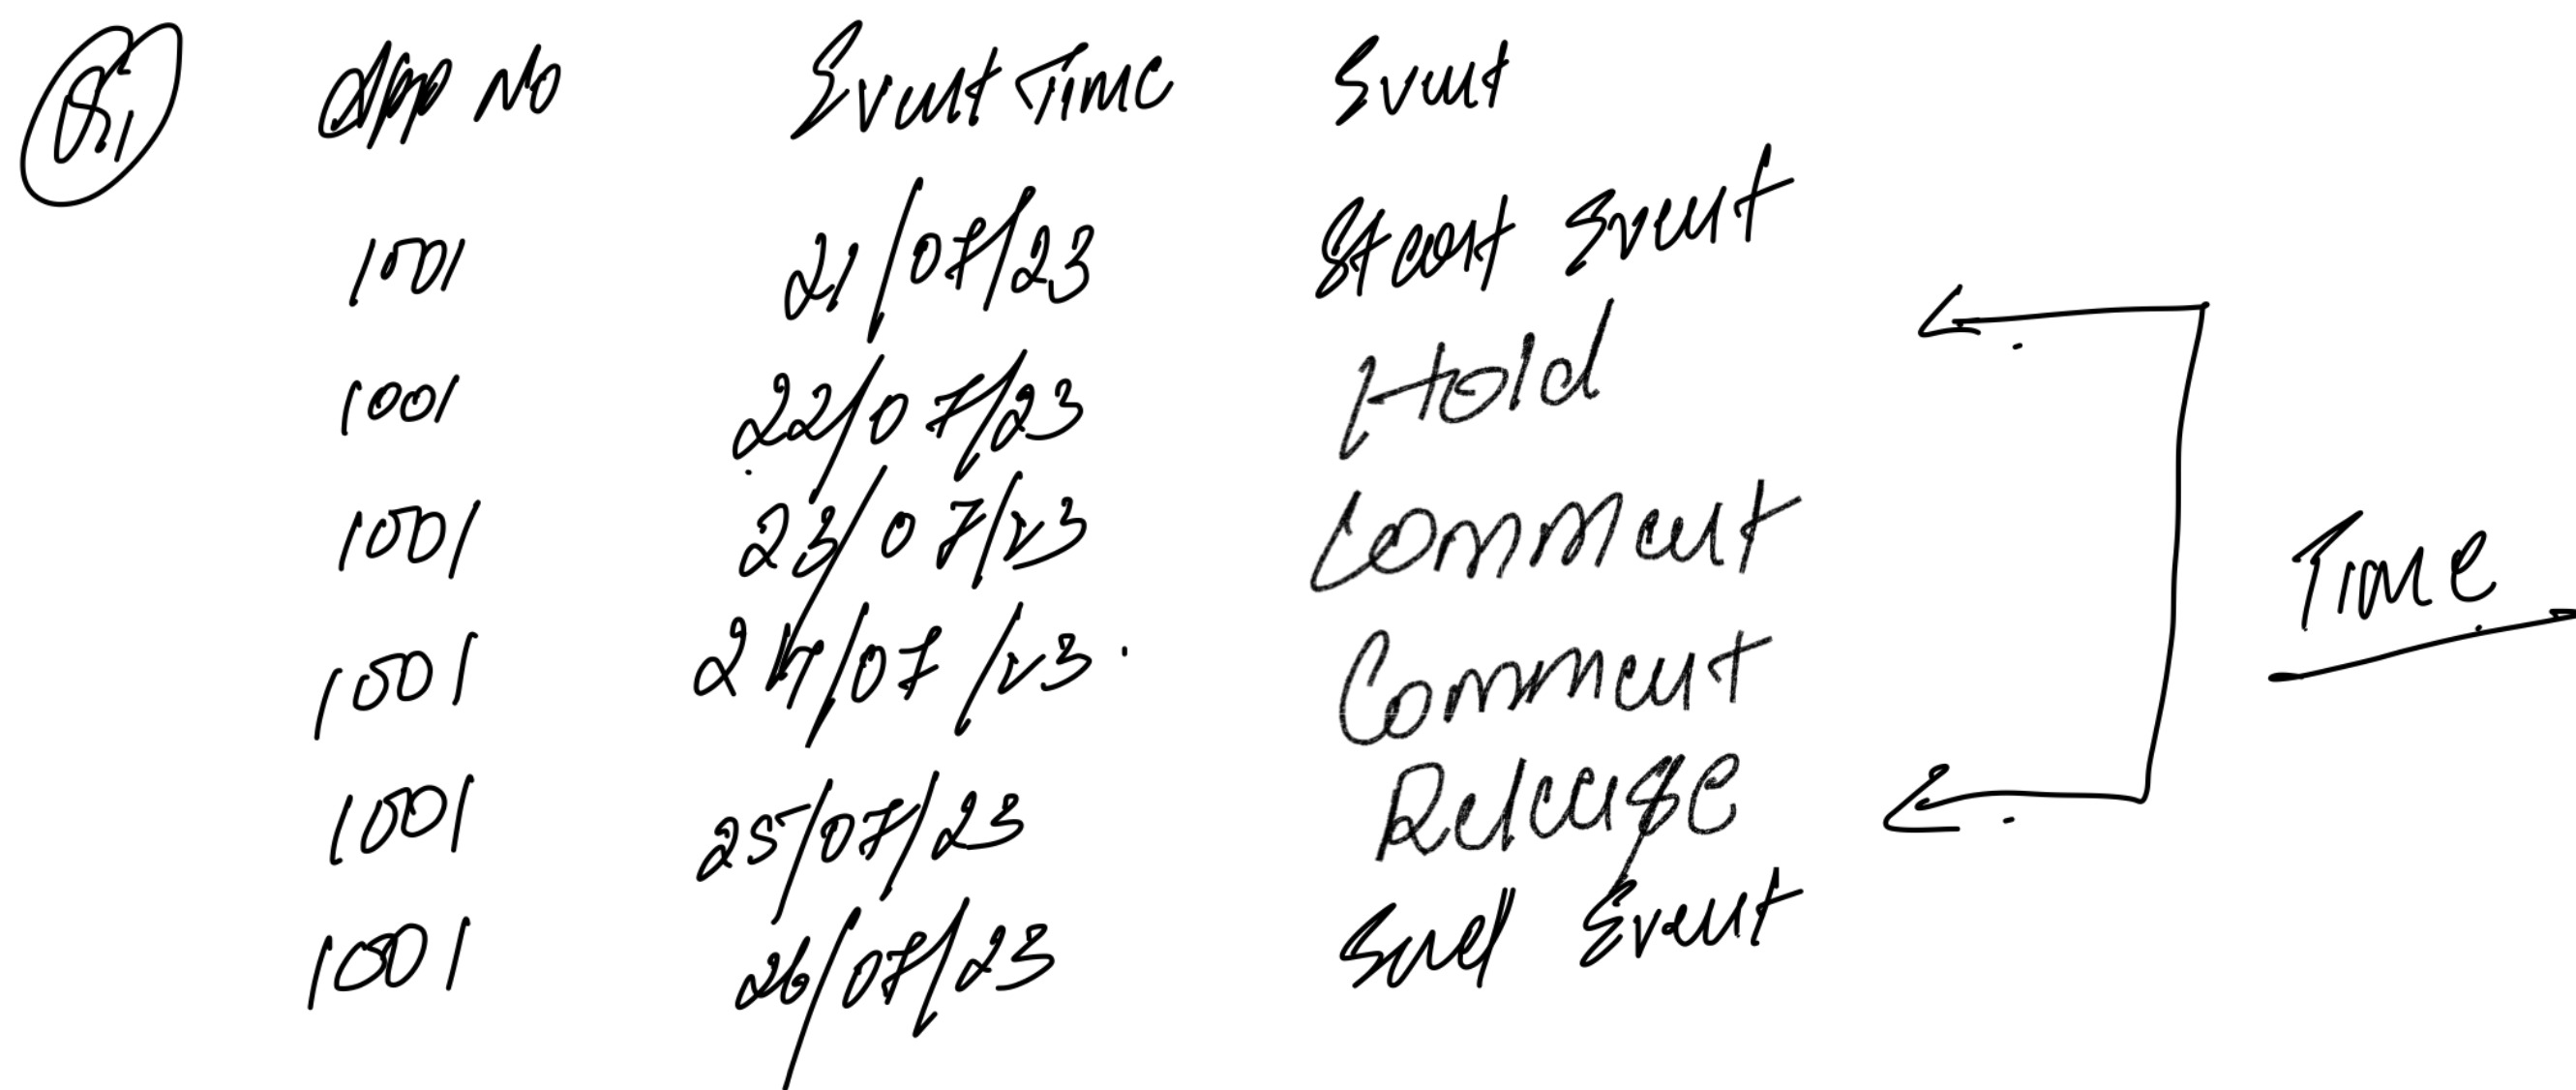 Q1 App No Event Time Event
1001 21/07/23 Start Event
1001 22/07/23 Hold
1001 23/07/23 Comment
Time
1001 24/07/23 Comment
1001 25/07/23 Release
1001 26/07/23 End Event